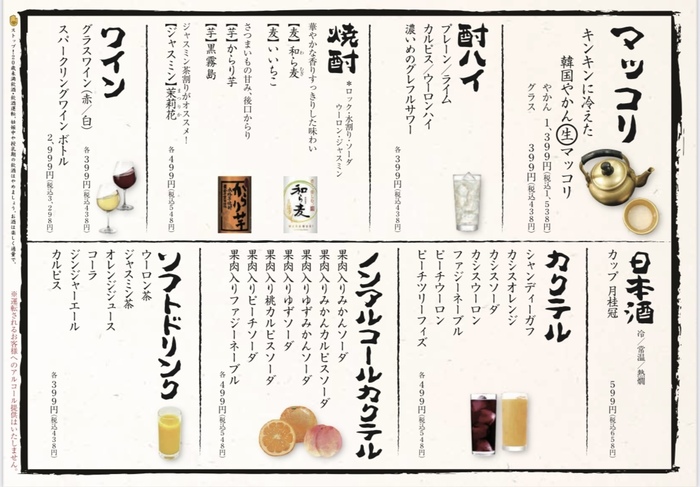 マッコリ
キンキンに冷えた
韓国やかん生マッコリ
やかん 1,399円(税込1,538円)
グラス 399円(税込438円)
酎ハイ
プレーン／ライム
カルピス／ウーロンハイ
濃いめのグレフルサワー
各399円(税込438円)
焼酎
*ロック・水割り・ソーダ
ウーロン・ジャスミン
華やかな香りすっきりした味わい
【麦】和ら麦
【麦】いいちこ
さつまいもの甘み、後口からり
【芋】からり芋
【芋】黒霧島
ジャスミン茶割りがオススメ！
【ジャスミン】茉莉花
各499円(税込548円)
からり芋
和ら麦
ワイン
グラスワイン(赤／白)
各399円(税込438円)
スパークリングワイン ボトル
2,999円(税込3,298円)
日本酒
冷／常温／熱燗
カップ 月桂冠
599円(税込658円)
カクテル
シャンディーガフ
カシスオレンジ
カシスソーダ
カシスウーロン
ファジーネーブル
ピーチウーロン
ピーチツリーフィズ
各499円(税込548円)
ノンアルコールカクテル
果肉入りみかんソーダ
果肉入りみかんカルピスソーダ
果肉入りゆずみかんソーダ
果肉入りゆずソーダ
果肉入り桃カルピスソーダ
果肉入りピーチソーダ
果肉入りファジーネーブル
各399円(税込438円)
ソフトドリンク
ウーロン茶
ジャスミン茶
オレンジジュース
コーラ
ジンジャーエール
カルピス
各399円(税込438円)
※運転されるお客様へのアルコール提供はいたしません。